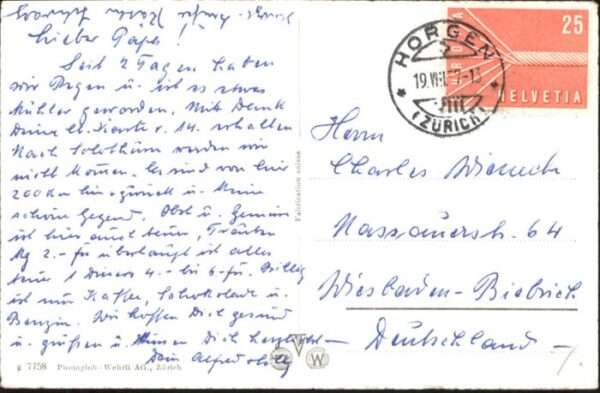 Lieber Papa!
Seit 2 Tagen haben
wir Regen u. ist es etwas
kühler geworden. Mit Dank
Deine lb. Karte v. 14. erhalten
Nach Solothurn werden wir
nicht kommen. Es sind von hier
200 km hin u. zurück u. keine
schöne Gegend. Obst u. Gemüse
ist hier auch teuer, Trauben
Kg 2.- fr überhaupt ist alles
teuer 1 Diner 4.- bis 6.- fr. Billig
ist nur Kaffee, Schokolade u.
Benzin. Wir hoffen Dich gesund
u. grüßen u. küssen Dich herzlichst
Dein Alfred
g 7758 Photoglob-Wehrli AG., Zürich
Fabrication suisse
VW
HORGEN
19.VIII.
(ZÜRICH)
HELVETIA
25
HELVETIA
Herrn
Charles
Nassauerstr. 64
Wiesbaden-Biebrich
Deutschland